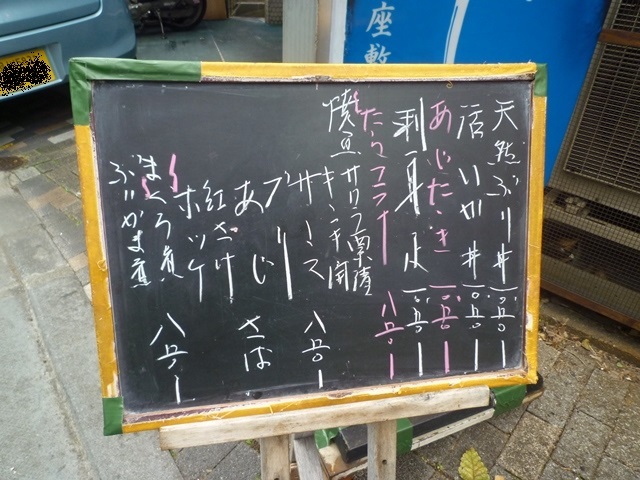 天然ぶり丼 一、〇五〇ー
活いか丼 一、〇五〇ー
あじたたき 一、〇五〇ー
刺身 一、〇五〇ー
たらフライ 八五〇ー
焼魚 サワラ粟漬
キンキ開
サーモス 八五〇ー
ブリ
あじ さば
紅さけ
ホッケ
まぐろ煮 八五〇ー
ぶりかま煮
座敷